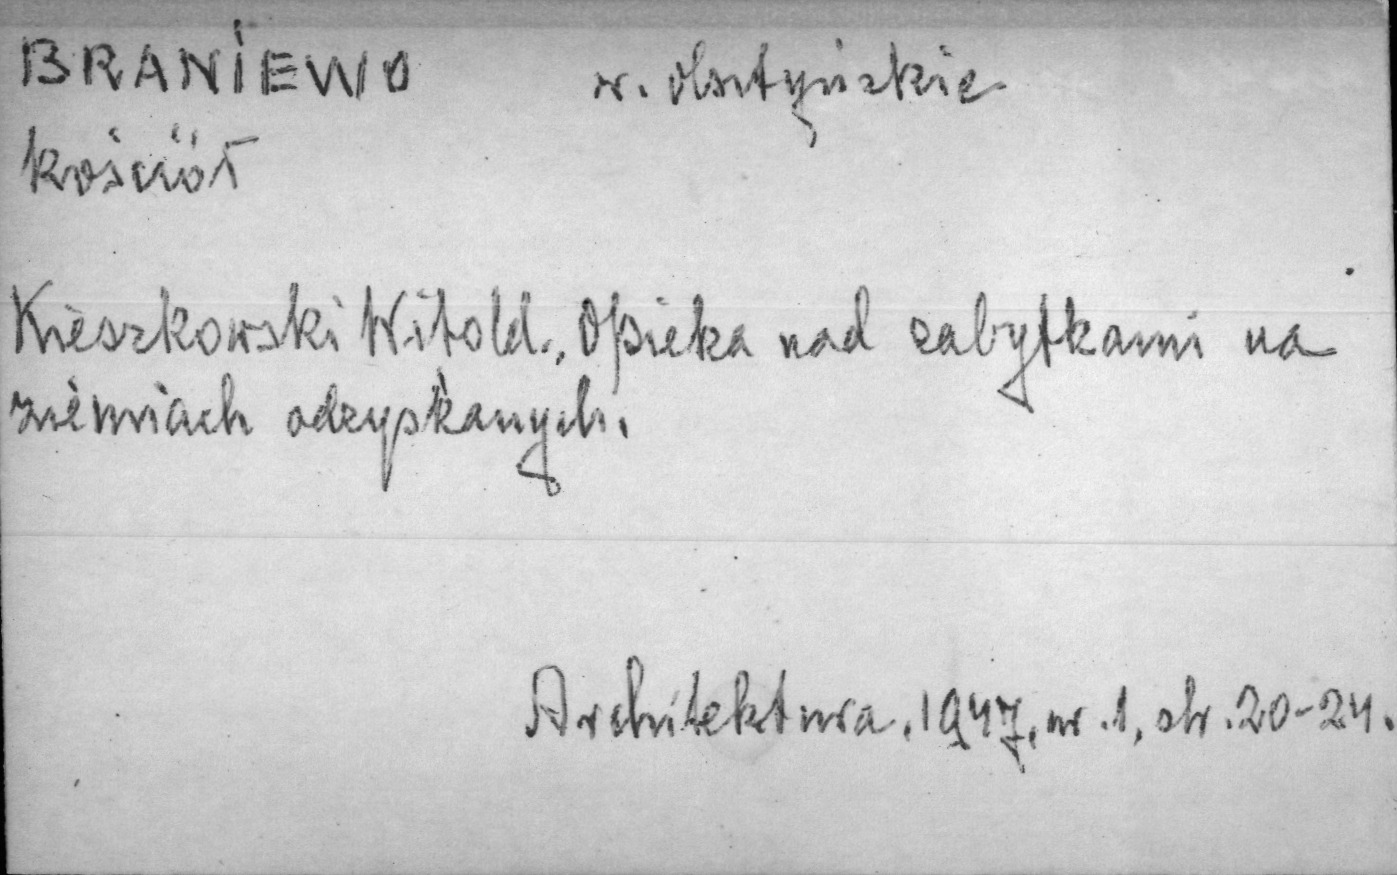 BRANIEWO w. olsztyńskie
kościół
Kieszkowski Witold., Opieka nad zabytkami na
ziemiach odzyskanych.
Architektura, 1947, nr. 1, str. 20-24.